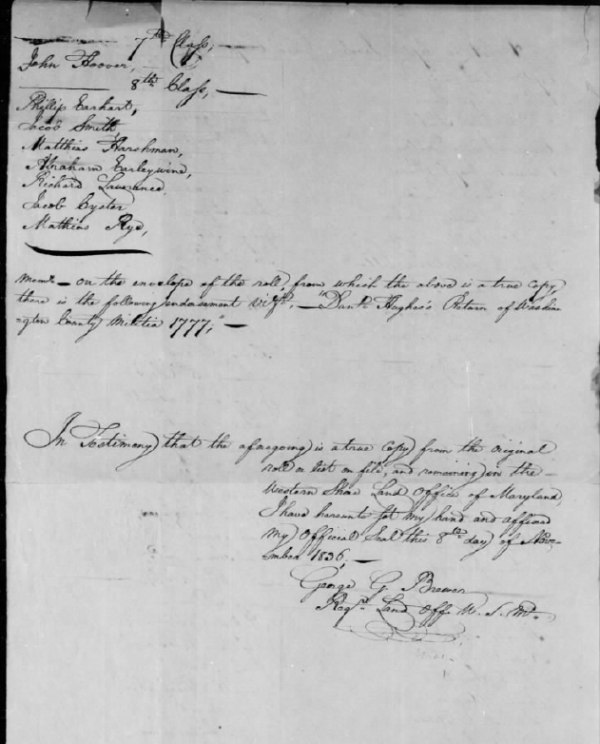 7th Class,
John Hoover,
8th Class,
Phillip Earhart,
Jacob Smith,
Matthias Harshman,
Abraham Earleywine,
Richard Lawrance
Jacob Oyster
Mathias Rye,
Memo. on the envelope of the roll, from which the above is a true copy
there is the following endorsement viz. "Danl. Hughes's Return of Washin
gton County Militia 1777,"
In Testimony that the aforegoing is a true copy from the original
roll or list on file, and remaining in the
Western Shore Land Office of Maryland,
I have hereunto set my hand and affixed
my Official Seal this 8th day of Nov-
ember 1836,
George G Brewer
Regr. Land Offi. W. S. Md.